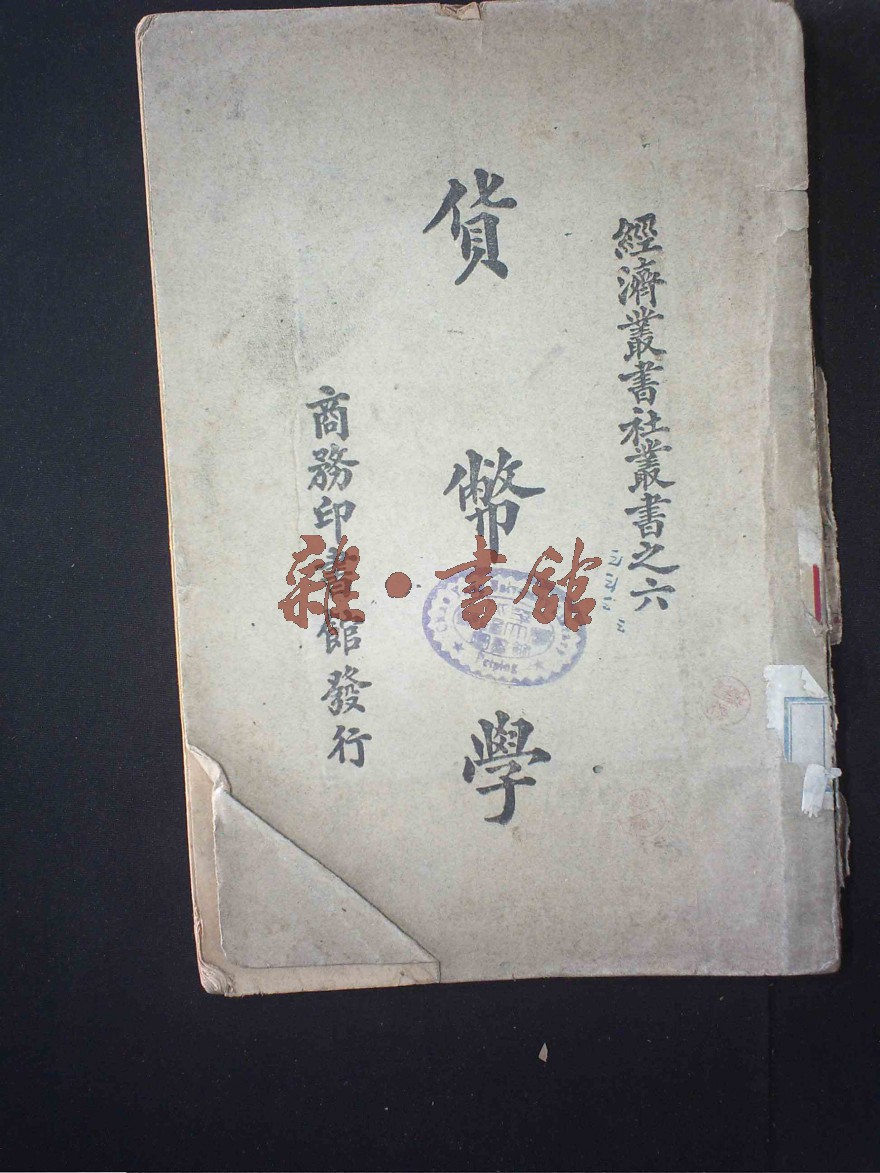 經濟叢書社叢書之六
貨幣學
商務印書館發行
雜·書館
Peiping